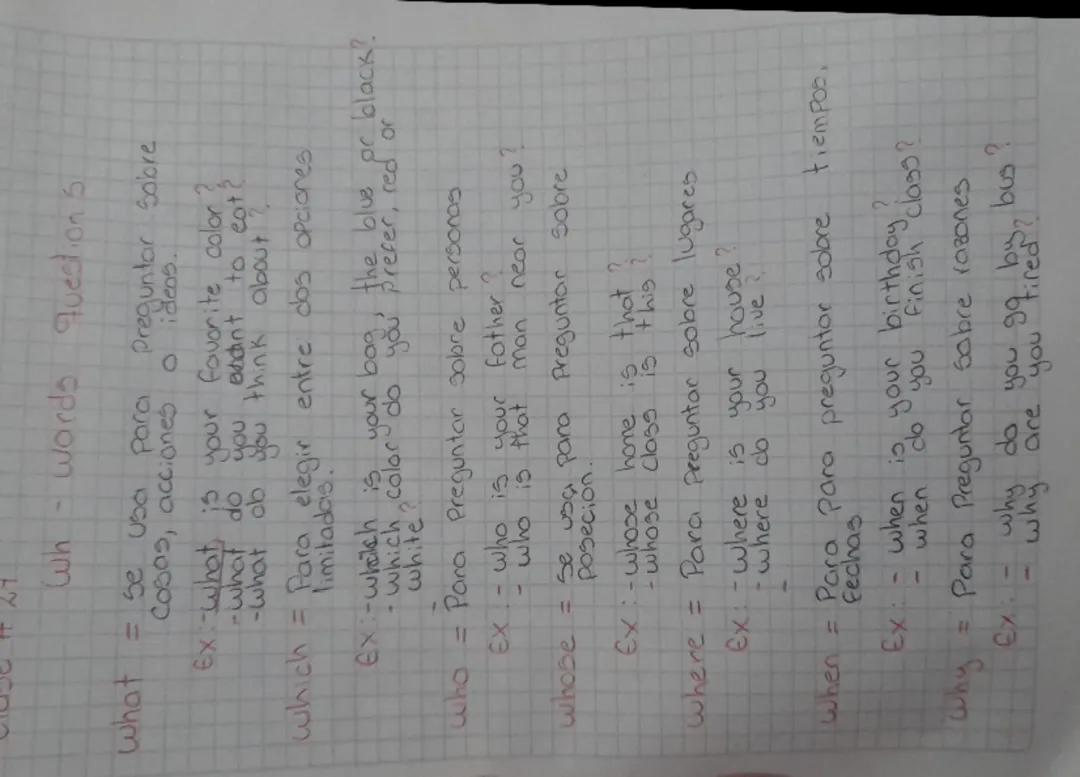 # 21
Wh - words question s
What = se usa para preguntar sobre
cosas, acciones o ideas.
Ex: -what is your favorite color?
-what do you want to eat?
-what do you think about?
Which = Para elegir entre dos opciones
limitadas.
Ex: -which is your bag, the blue or black?
-which color do you prefer, red or
white?
Who = Para preguntar sobre personas
Ex: - who is your father?
- who is that man near you?
whose = se usa para preguntar sobre
posecion.
Ex: -whose home is that?
-whose class is this?
where = Para preguntar sobre lugares
Ex: -where is your house?
-where do you live?
-
when = Para Para preguntar sobre tiempos.
fechas
Ex: - when is your birthday?
- when do you finish class?
why = Para preguntar sobre razones
Ex: - why do you go by bus?
- why are you tired?